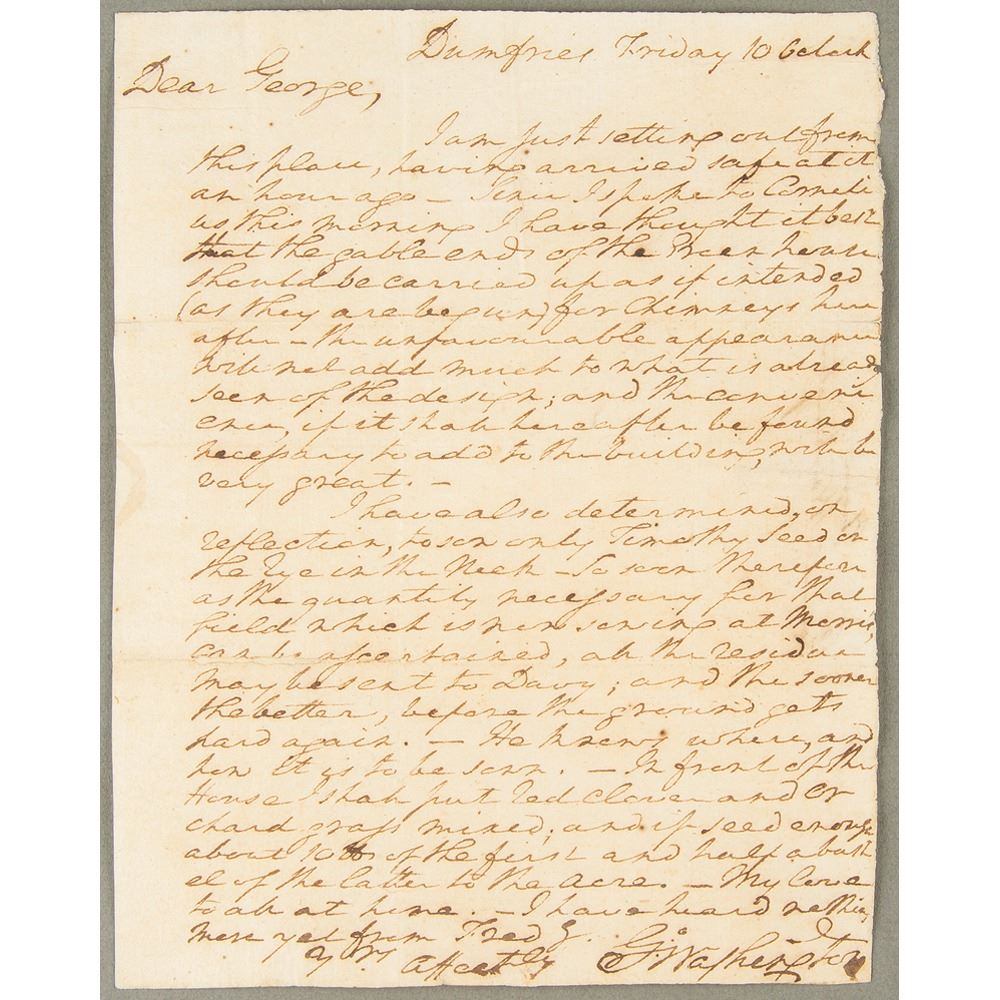 Dumfries Friday 10 Oclock
Dear George,
I am just setting out from
this place, having arrived safe at it
an hour ago – Since I spoke to Corneli
us this morning I have thought it best
that the gable ends of the Green house
should be carried up as if intended
(as they are begun) for Chimneys here
after – the unfavourable appearance
will not add much to what is already
seen of the design; and the conveni
ence, if it shall hereafter be found
necessary to add to the building, will be
very great. –
I have also determined, on
reflection, to sow only Timothy Seed on
the rye in the Neck – So soon therefore
as the quantity necessary for that
field which is now sowing at Morris's
can be ascertained, all the residue
may be sent to Davy; and the sooner
the better, before the ground gets
hard again. – He knows where, and
how it is to be sown. – In front of the
House I shall put red clover and Or
chard grass mixed; and if seed enough
about 10 lbs of the first and half a bush
el of the latter to the acre. – My love
to all at home. – I have heard nothing
more yet from Fredg.
Yrs Affectly Go: Washington